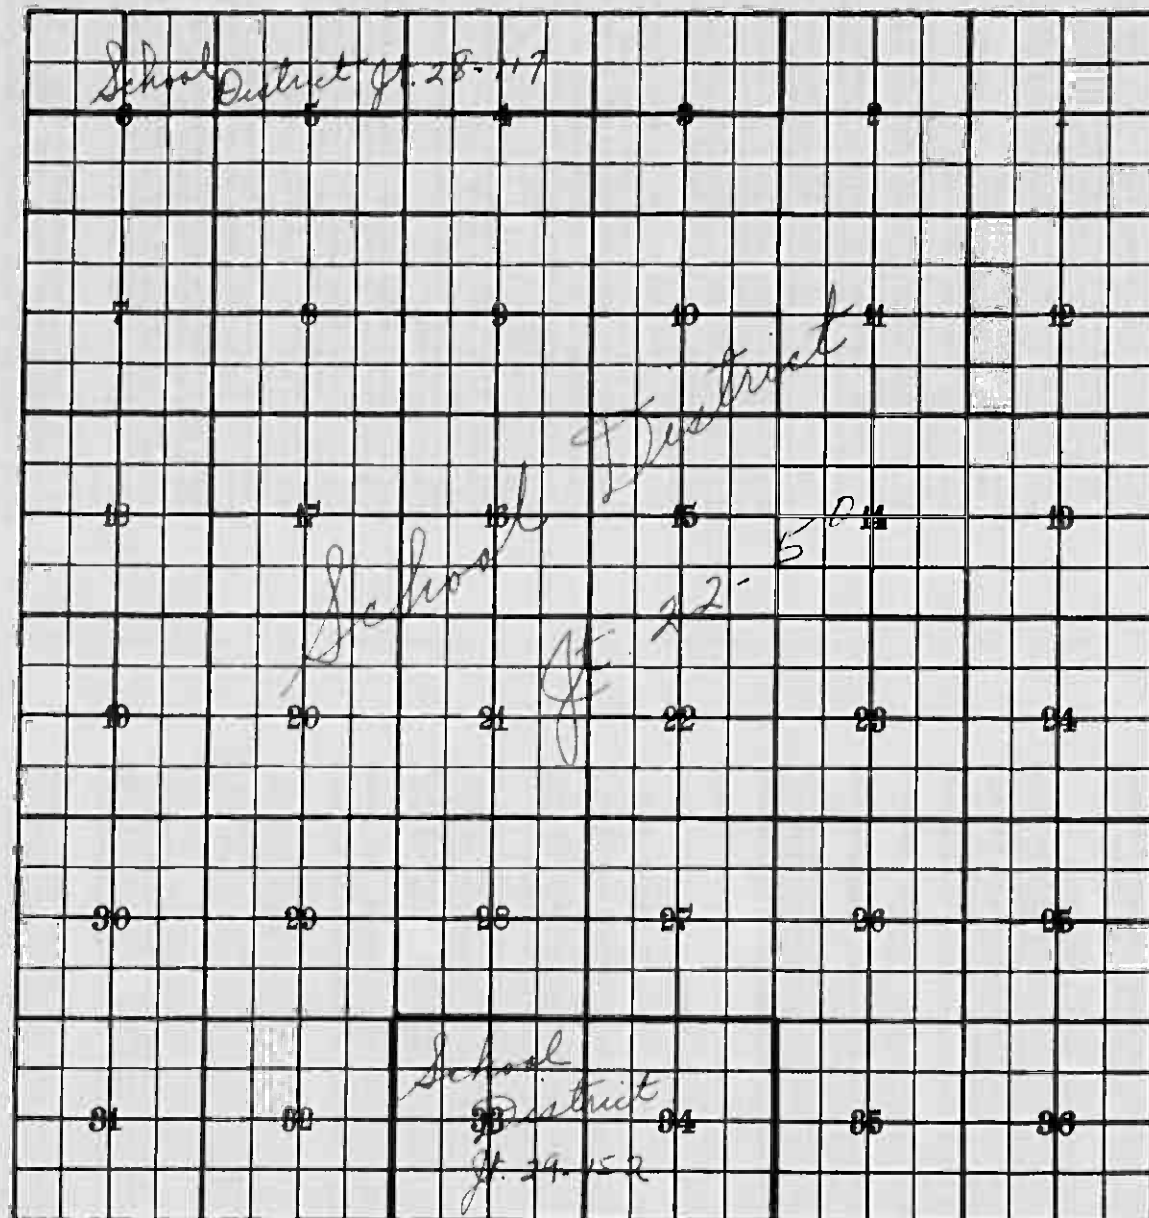 School District Jt. 28-117
6 5 4 3 2 1
7 8 9 10 11 12
18 17 16 15 14 13
School District
Jt 22-50
19 20 21 22 23 24
30 29 28 27 26 25
School
District
31 32 33 34 35 36
Jt. 29-152